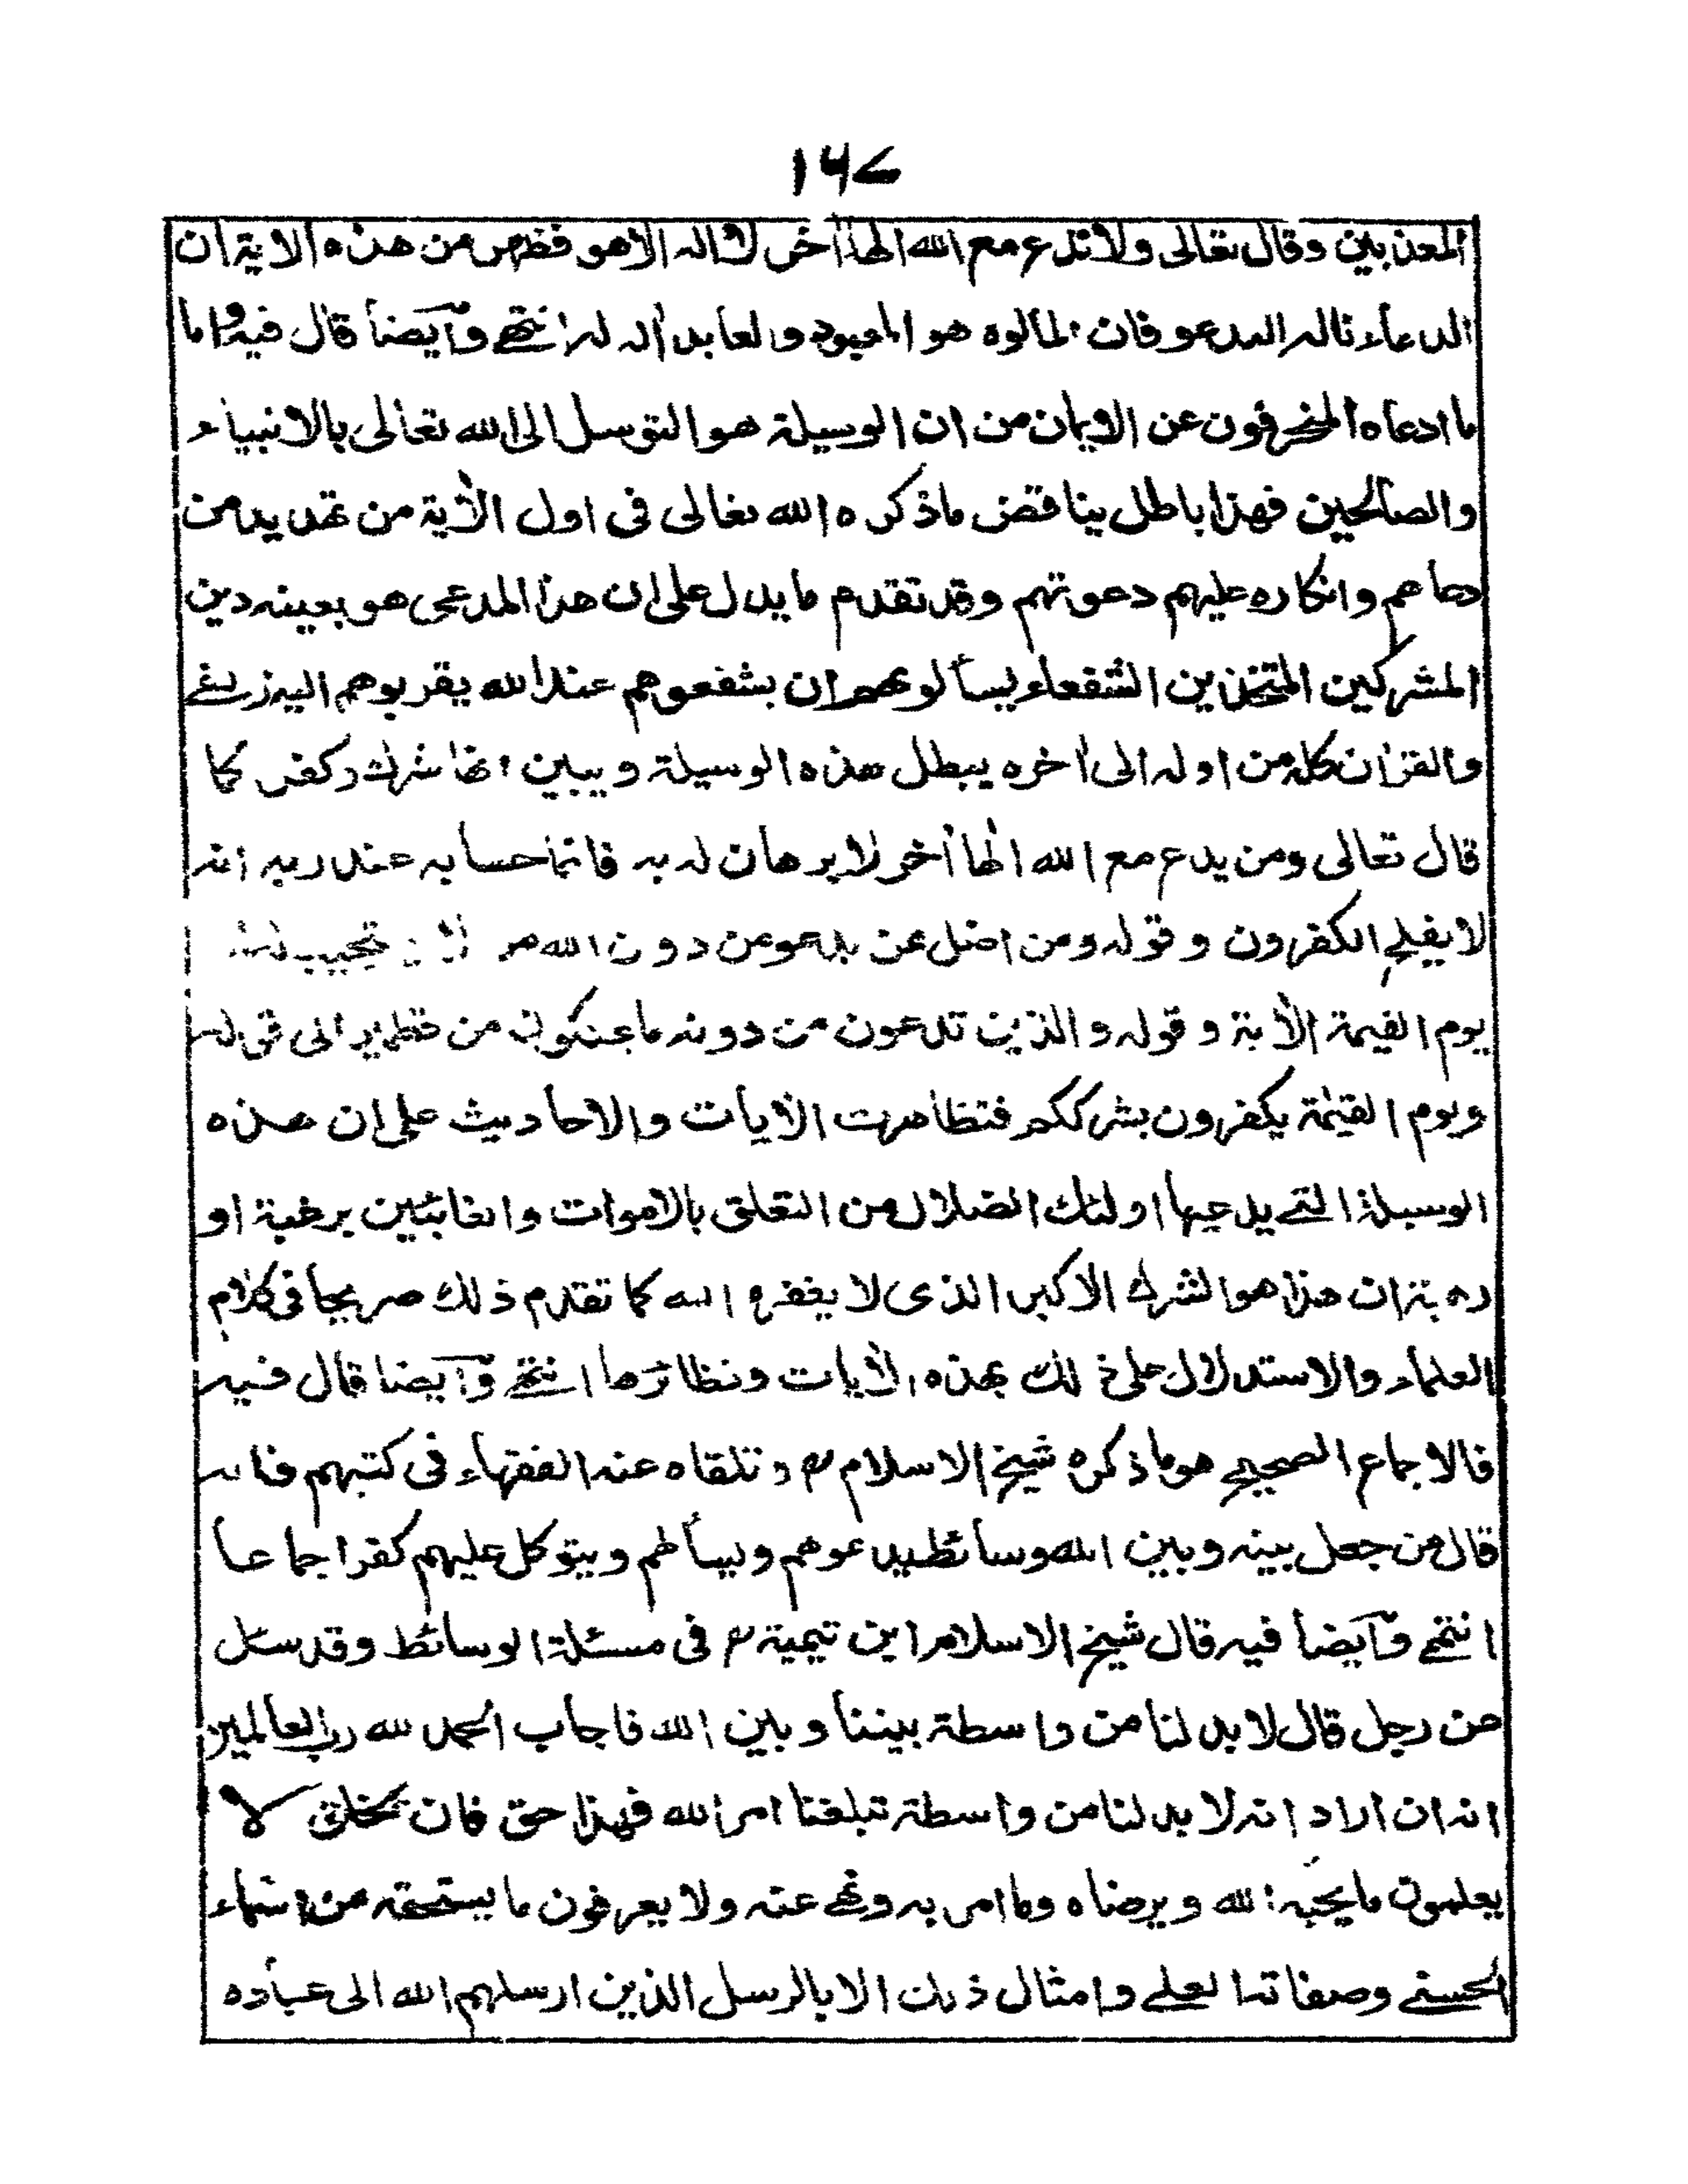 ١٦٧
المعذبين وقال تعالى ولا تدع مع الله الها اخر لا اله الا هو فظهر من هذه الاية ان
الدعاء تاله المدعو فان المألوه هو المعبود والعابد اله له انتهى وآيضا قال فيه واما
ما ادعاه المنحرفون عن الايمان من ان الوسيلة هو التوسل الى الله تعالى بالانبياء
والصالحين فهذا باطل يناقض ماذكره الله تعالى فى اول الأية من تهديد من
دعاهم وانكاره عليهم دعوتهم وقد تقدم ما يدل على ان هذا المدعى هو بعينه دين
المشركين المتخذين الشفعاء يسألونهم ان يشفعوهم عند الله يقربوهم اليه زلفى
والقرٰان كله من اوله الى أخره يبطل هذه الوسيلة ويبين انها شرك وكفر كما
قال تعالى ومن يدع مع الله الٰها أخر لا برهان له به فانما حسابه عند ربه انه
لا يفلح الكفرون وقوله ومن اضل ممن يدعو من دون الله من لا يستجيب له
يوم القيمة الأية وقوله والذين تدعون من دونه ما يملكون من قطمير الى قوله
ويوم القيٰمة يكفرون بشرككم فتظاهرت الأيات والاحاديث على ان هذه
الوسيلة التى يدعيها اولئك الضلال من التعلق بالاموات والغائبين برغبة او
رهبة ان هذا هو الشرك الاكبر الذى لا يغفره الله كما تقدم ذلك صريحا فى كلام
العلماء والاستدلال على ذلك بهذه الأيات ونظائرها انتهى وآيضا قال فيه
فالاجماع الصحيح هو ما ذكره شيخ الاسلام رح وتلقاه عنه الفقهاء فى كتبهم فانه
قال من جعل بينه وبين الله وسائط يدعوهم ويسألهم ويتوكل عليهم كفر اجماعا
انتهى وآيضا فيه قال شيخ الاسلام ابن تيمية رح فى مسئلة الوسائط وقد سئل
عن رجل قال لا بد لنا من واسطة بيننا وبين الله فاجاب الحمد لله رب العالمين
انه ان اراد انه لا بد لنا من واسطة تبلغنا امر الله فهذا حق فان الخلق لا
يعلمون ما يحبه الله ويرضاه وما امر به ونهى عنه ولا يعرفون ما يستحقه من اسماء
الحسنى وصفاته العلى وامثال ذلك الا بالرسل الذين ارسلهم الله الى عباده